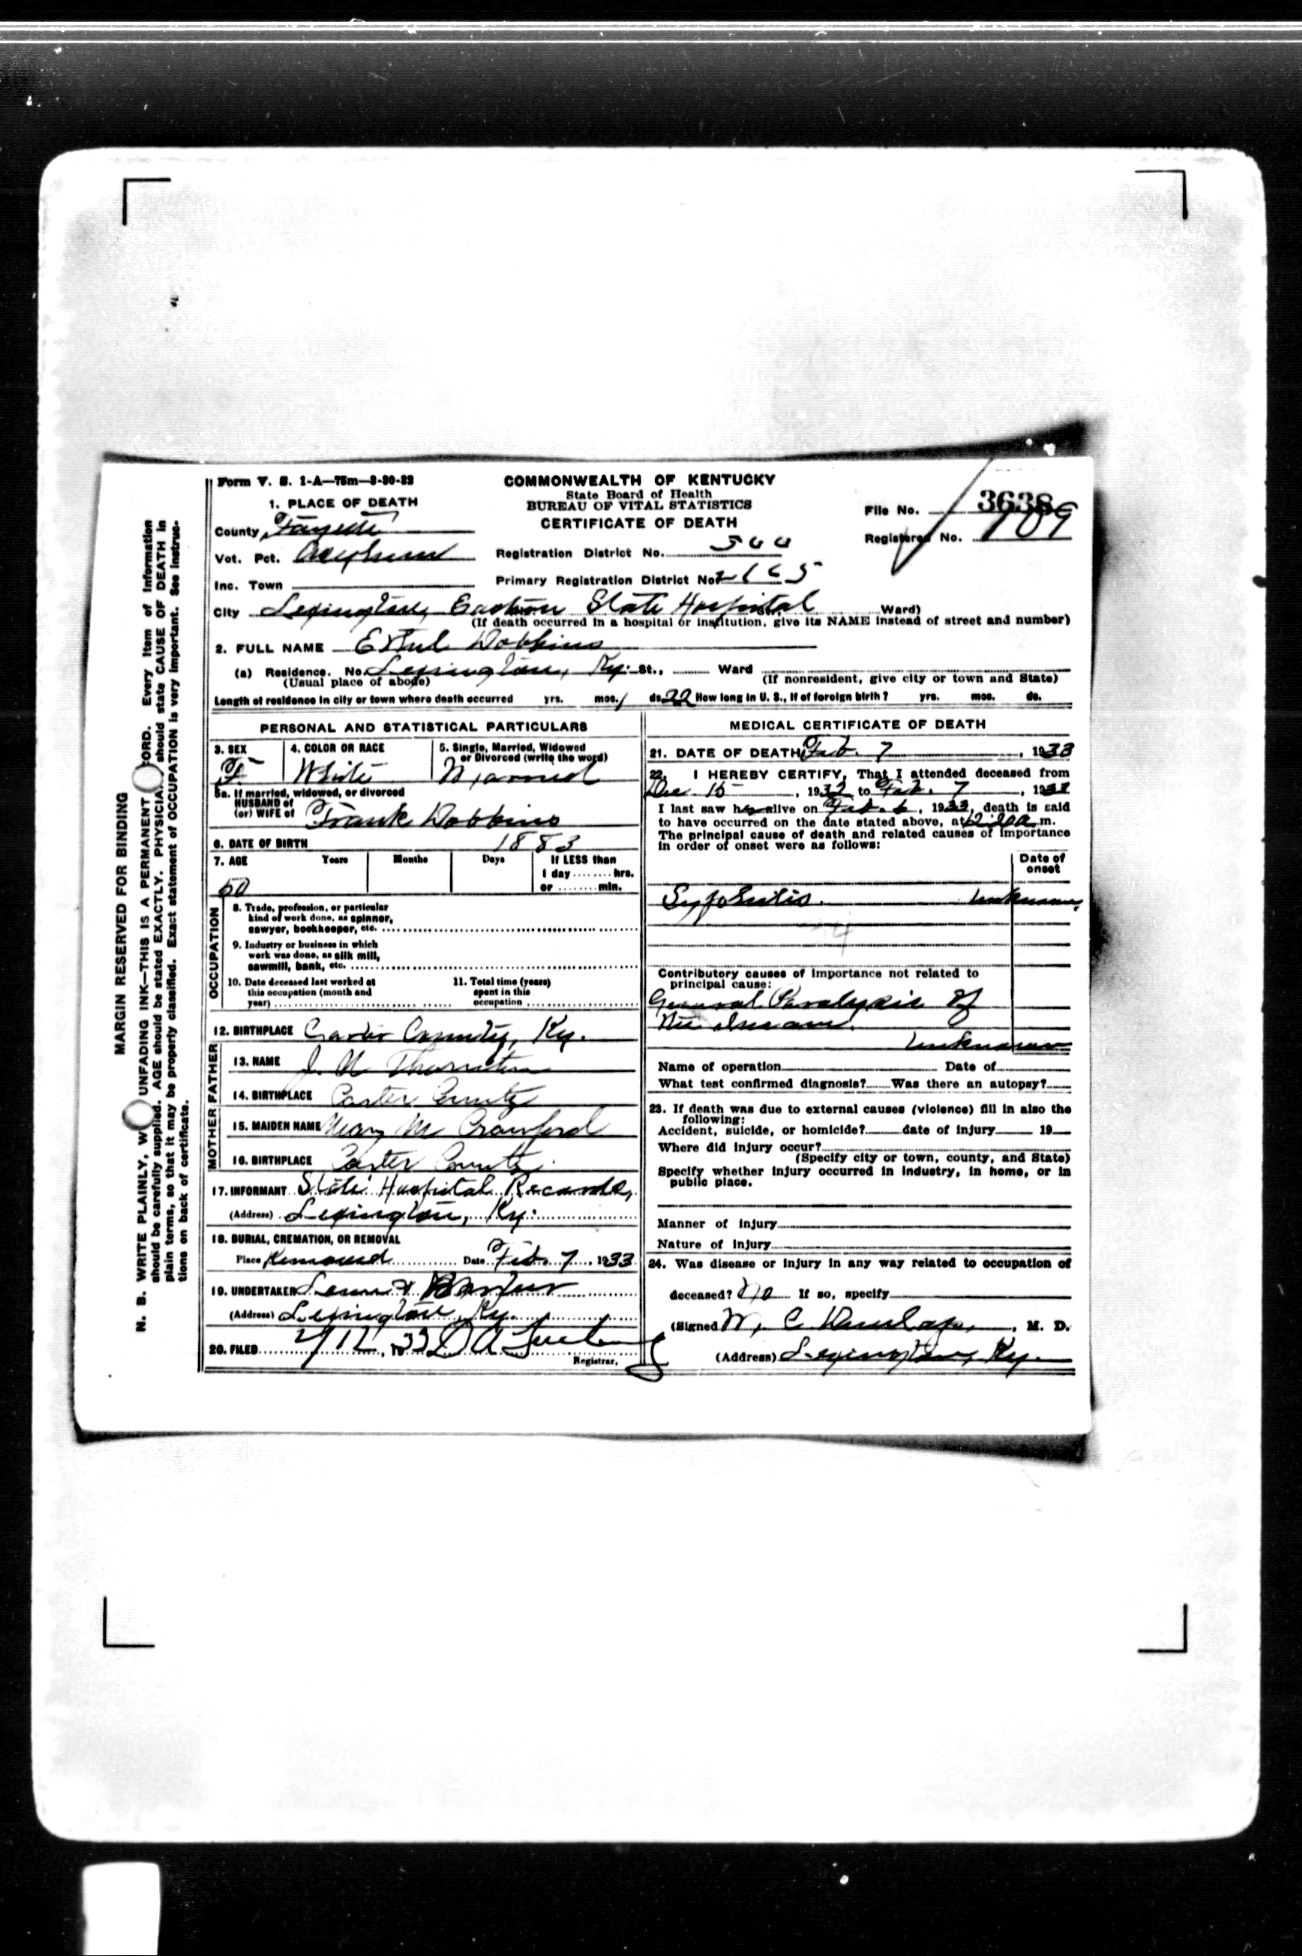 Form V. S. 1-A—75m—8-30-32
COMMONWEALTH OF KENTUCKY
State Board of Health
BUREAU OF VITAL STATISTICS
CERTIFICATE OF DEATH
File No. 3638
Registered No. 109
1. PLACE OF DEATH
County Fayette
Vot. Pct. Asylum
Registration District No.
Inc. Town
Primary Registration District No. 2165
City Lexington, Eastern State Hospital Ward)
(If death occurred in a hospital or institution, give its NAME instead of street and number)
2. FULL NAME Ethel Dobbins
(a) Residence. No. Lexington, Ky. St., Ward
(Usual place of abode) (If nonresident, give city or town and State)
Length of residence in city or town where death occurred yrs. mos. 1 ds. 22 How long in U. S., if of foreign birth? yrs. mos. ds.
PERSONAL AND STATISTICAL PARTICULARS
3. SEX 4. COLOR OR RACE 5. Single, Married, Widowed
or Divorced (write the word)
F White Married
5a. If married, widowed, or divorced
HUSBAND of
(or) WIFE of Frank Dobbins
6. DATE OF BIRTH 1883
7. AGE Years Months Days If LESS than
1 day ........ hrs.
50 or ........ min.
OCCUPATION
8. Trade, profession, or particular
kind of work done, as spinner,
sawyer, bookkeeper, etc.
9. Industry or business in which
work was done, as silk mill,
sawmill, bank, etc.
10. Date deceased last worked at
this occupation (month and
year)
11. Total time (years)
spent in this
occupation
12. BIRTHPLACE Carter County, Ky.
FATHER
13. NAME J. Thornton
14. BIRTHPLACE Carter County
MOTHER
15. MAIDEN NAME Mary M Crawford
16. BIRTHPLACE Carter County.
17. INFORMANT State Hospital Records,
(Address) Lexington, Ky.
18. BURIAL, CREMATION, OR REMOVAL
Place Removed Date Feb. 7, 1933
19. UNDERTAKER
(Address) Lexington, Ky.
20. FILED 2/12, 1933
Registrar.
MEDICAL CERTIFICATE OF DEATH
21. DATE OF DEATH Feb. 7, 1933
22. I HEREBY CERTIFY, That I attended deceased from
Dec 15, 1932 to Feb. 7, 1933
I last saw her alive on Feb. 6, 1933, death is said
to have occurred on the date stated above, at 12:20 a m.
The principal cause of death and related causes of importance
in order of onset were as follows:
Date of
onset
Unknown.
Contributory causes of importance not related to
principal cause:
General Paralysis of
the Insane.
Unknown
Name of operation Date of
What test confirmed diagnosis? Was there an autopsy?
23. If death was due to external causes (violence) fill in also the
following:
Accident, suicide, or homicide? date of injury 19
Where did injury occur?
(Specify city or town, county, and State)
Specify whether injury occurred in industry, in home, or in
public place.
Manner of injury
Nature of injury
24. Was disease or injury in any way related to occupation of
deceased? No If so, specify
(Signed W. C. Dunlap, M. D.
(Address) Lexington, Ky.
MARGIN RESERVED FOR BINDING
N. B. WRITE PLAINLY, W UNFADING INK—THIS IS A PERMANENT ORD. Every item of information
should be carefully supplied. AGE should be stated EXACTLY. PHYSICIA should state CAUSE OF DEATH in
plain terms, so that it may be properly classified. Exact statement of OCCUPATION is very important. See instruc-
tions on back of certificate.